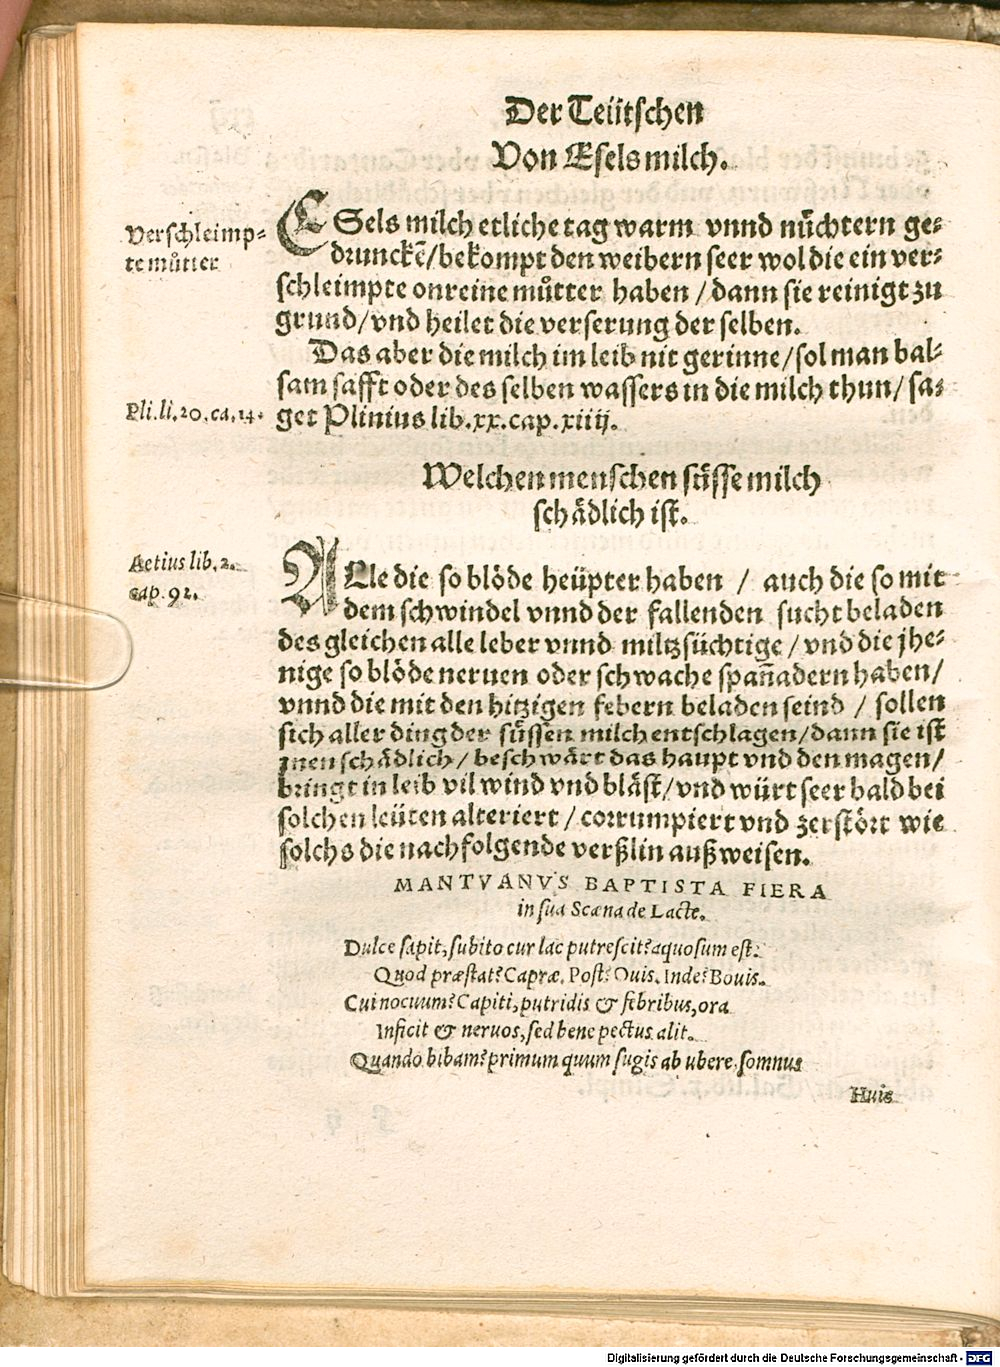 Der Teütschen
Von Esels milch.
Verschleimp-
te muͤtter
ESels milch etliche tag warm vnnd nuͤchtern ge-
drunckẽ/bekompt den weibern seer wol die ein ver-
schleimpte onreine muͤtter haben / dann sie reinigt zu
grund/vnd heilet die verserung der selben.
Das aber die milch im leib nit gerinne/sol man bal-
sam safft oder des selben wassers in die milch thun/ sa-
Pli.li.20.ca.14.
get Plinius lib.xx.cap.xiiij.
Welchen menschen suͤsse milch
schaͤdlich ist.
Aetius lib.2.
cap.92.
ALle die so bloͤde heüpter haben / auch die so mit
dem schwindel vnnd der fallenden sucht beladen
des gleichen alle leber vnnd miltzsüchtige / vnd die jhe-
nige so bloͤde neruen oder schwache spañadern haben/
vnnd die mit den hitzigen febern beladen seind / sollen
sich aller ding der suͤssen milch entschlagen/dann sie ist
jnen schaͤdlich / beschwaͤrt das haupt vnd den magen/
bringt in leib vil wind vnd blaͤst/vnd würt seer bald bei
solchen leüten alteriert / corrumpiert vnd zerstoͤrt wie
solchs die nachfolgende verßlin außweisen.
MANTVANVS BAPTISTA FIERA
in sua Scæna de Lacte.
Dulce sapit, subito cur lac putrescit? aquosum est.
Quod præstat? Capræ. Post? Ouis. Inde? Bouis.
Cui nocuum? Capiti, putridis & febribus, ora
Inficit & neruos, sed bene pectus alit.
Quando bibam? primum quum sugis ab ubere, somnus
Huis
Digitalisierung gefördert durch die Deutsche Forschungsgemeinschaft - DFG